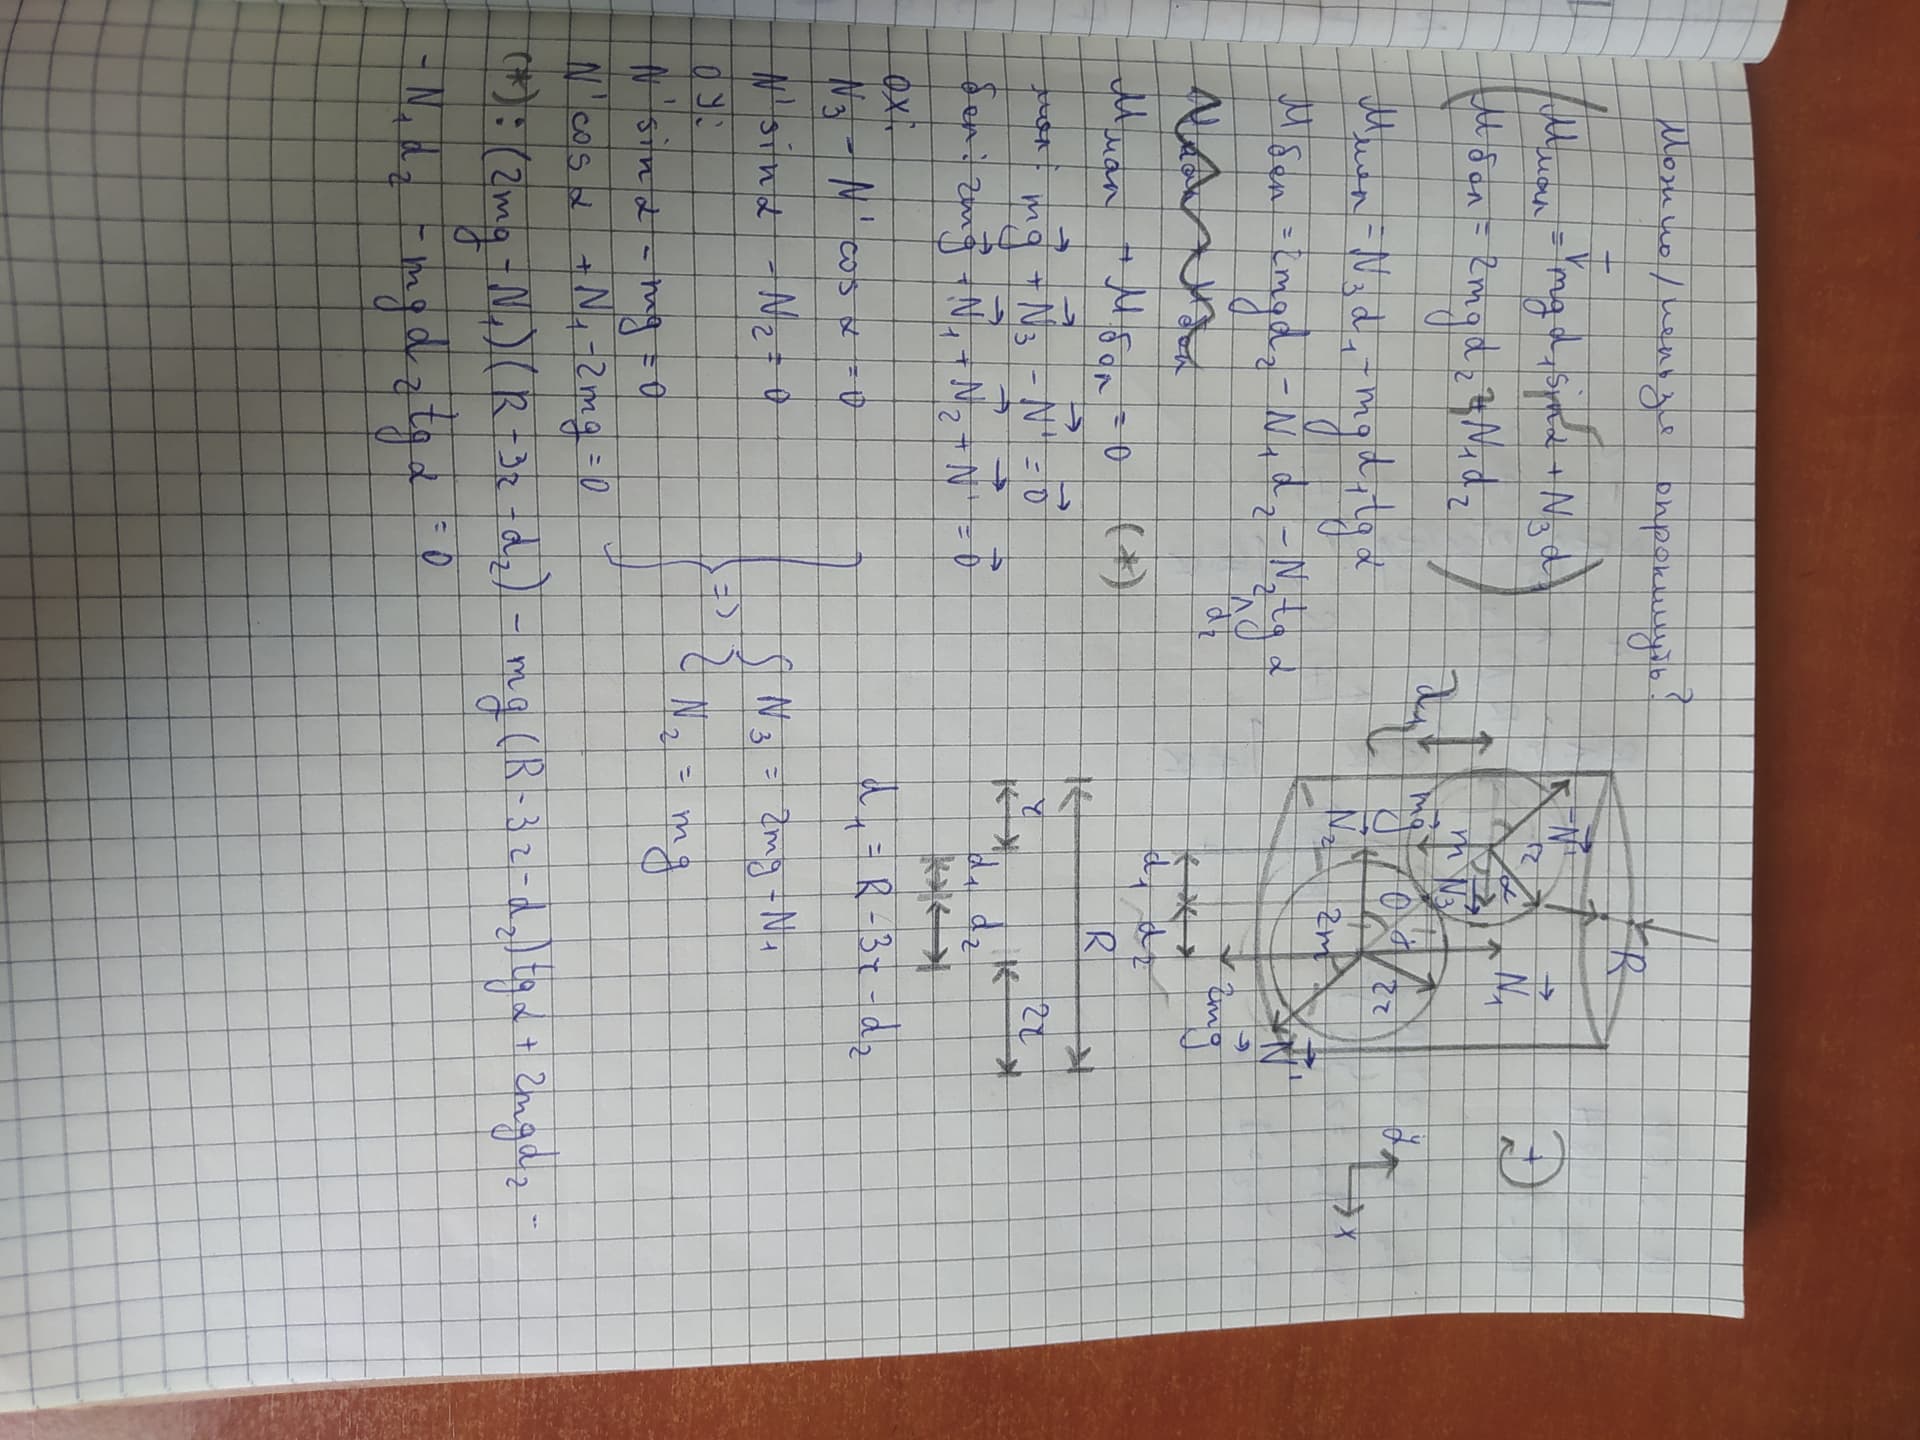 Можно/нельзя опрокинуть?
Mмал = mg d₁ sin α + N₃ d₁
Mбол = 2mg d₂ + N₁ d₂
Mмал = N₃ d₁ - mg d₁ tg α
Mбол = 2mg d₂ - N₁ d₂ - N₂ tg α
d₂
Mмал + Mбол = 0 (*)
мал: mg + N₃ - N' = 0
бол: 2mg + N₁ + N₂ + N' = 0
OX:
N₃ - N' cos α = 0
N' sin α - N₂ = 0
OY:
N' sin α - mg = 0
N' cos α + N₁ - 2mg = 0
=> { N₃ = 2mg - N₁
{ N₂ = mg
d₁ = R - 3r - d₂
(*): (2mg - N₁)(R - 3r - d₂) - mg(R - 3r - d₂) tg α + 2mg d₂ -
- N₁ d₂ - mg d₂ tg α = 0
R
-N'
r
α
m
mg
N₃
N₂
O
2m
2r
N₁
2mg
N'
d₁ d₂
R
r
d₁ d₂
2r
+
y
x